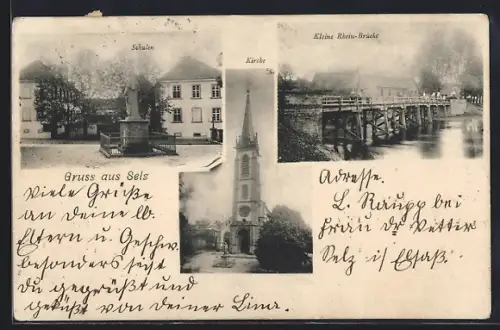 Schulen
Kirche
Kleine Rhein-Brücke
Gruss aus Selz
Viele Grüße
an deine lb.
Eltern u. Geschw.
besonders seist
Du gegrüßt und
geküßt von deiner Lina.
Adresse.
L. Raupp bei
Frau Dr Vetter
Selz i/ Elsaß.